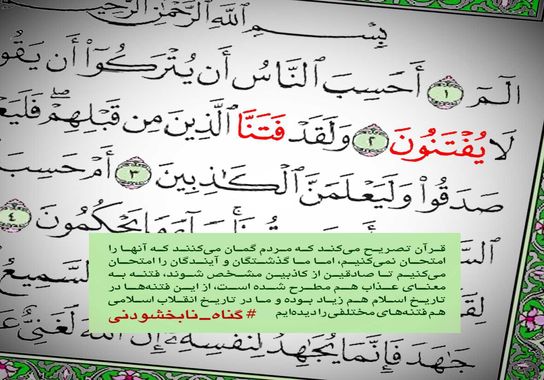 بِسْمِ ٱللَّهِ ٱلرَّحْمَٰنِ ٱلرَّحِيمِ
الٓمٓ ١ أَحَسِبَ ٱلنَّاسُ أَن يُتْرَكُوٓا۟ أَن يَقُو
لَا يُفْتَنُونَ ٢ وَلَقَدْ فَتَنَّا ٱلَّذِينَ مِن قَبْلِهِمْ ۖ فَلَيَعْ
صَدَقُوا۟ وَلَيَعْلَمَنَّ ٱلْكَٰذِبِينَ ٣ أَمْ حَسِبَ
يَحْكُمُونَ ٤
قرآن تصریح می‌کند که مردم گمان می‌کنند که آنها را
امتحان نمی‌کنیم، اما ما گذشتگان و آیندگان را امتحان
می‌کنیم تا صادقین از کاذبین مشخص شوند، فتنه به
معنای عذاب هم مطرح شده است، از این فتنه‌ها در
تاریخ اسلام هم زیاد بوده و ما در تاریخ انقلاب اسلامی
هم فتنه‌های مختلفی را دیده‌ایم #گناه_نابخشودنی
ٱلسَّمِيعُ
جَٰهَدَ فَإِنَّمَا يُجَٰهِدُ لِنَفْسِهِۦٓ إِنَّ ٱللَّهَ لَغَنِىٌّ